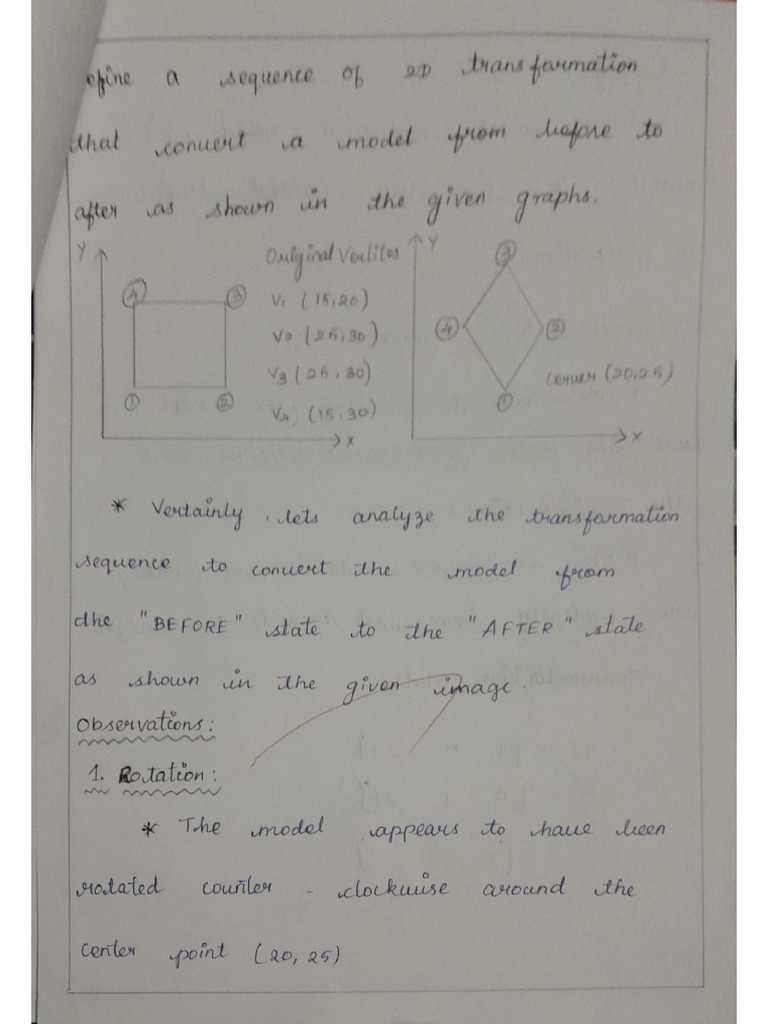 efine a sequence of 2D transformation
that convert a model from before to
after as shown in the given graphs.
Y
④ ③
① ②
X
Original Vertites
V1 (15,20)
V2 (25,30)
V3 (25,30)
V4, (15,30)
Y
③
④ ②
①
Center (20,25)
X
* Vertainly, lets analyze the transformation
sequence to convert the model from
the "BEFORE" state to the "AFTER" state
as shown in the given image.
Observations:
1. Rotation:
* The model appears to have been
rotated counter - clockwise around the
center point (20, 25)